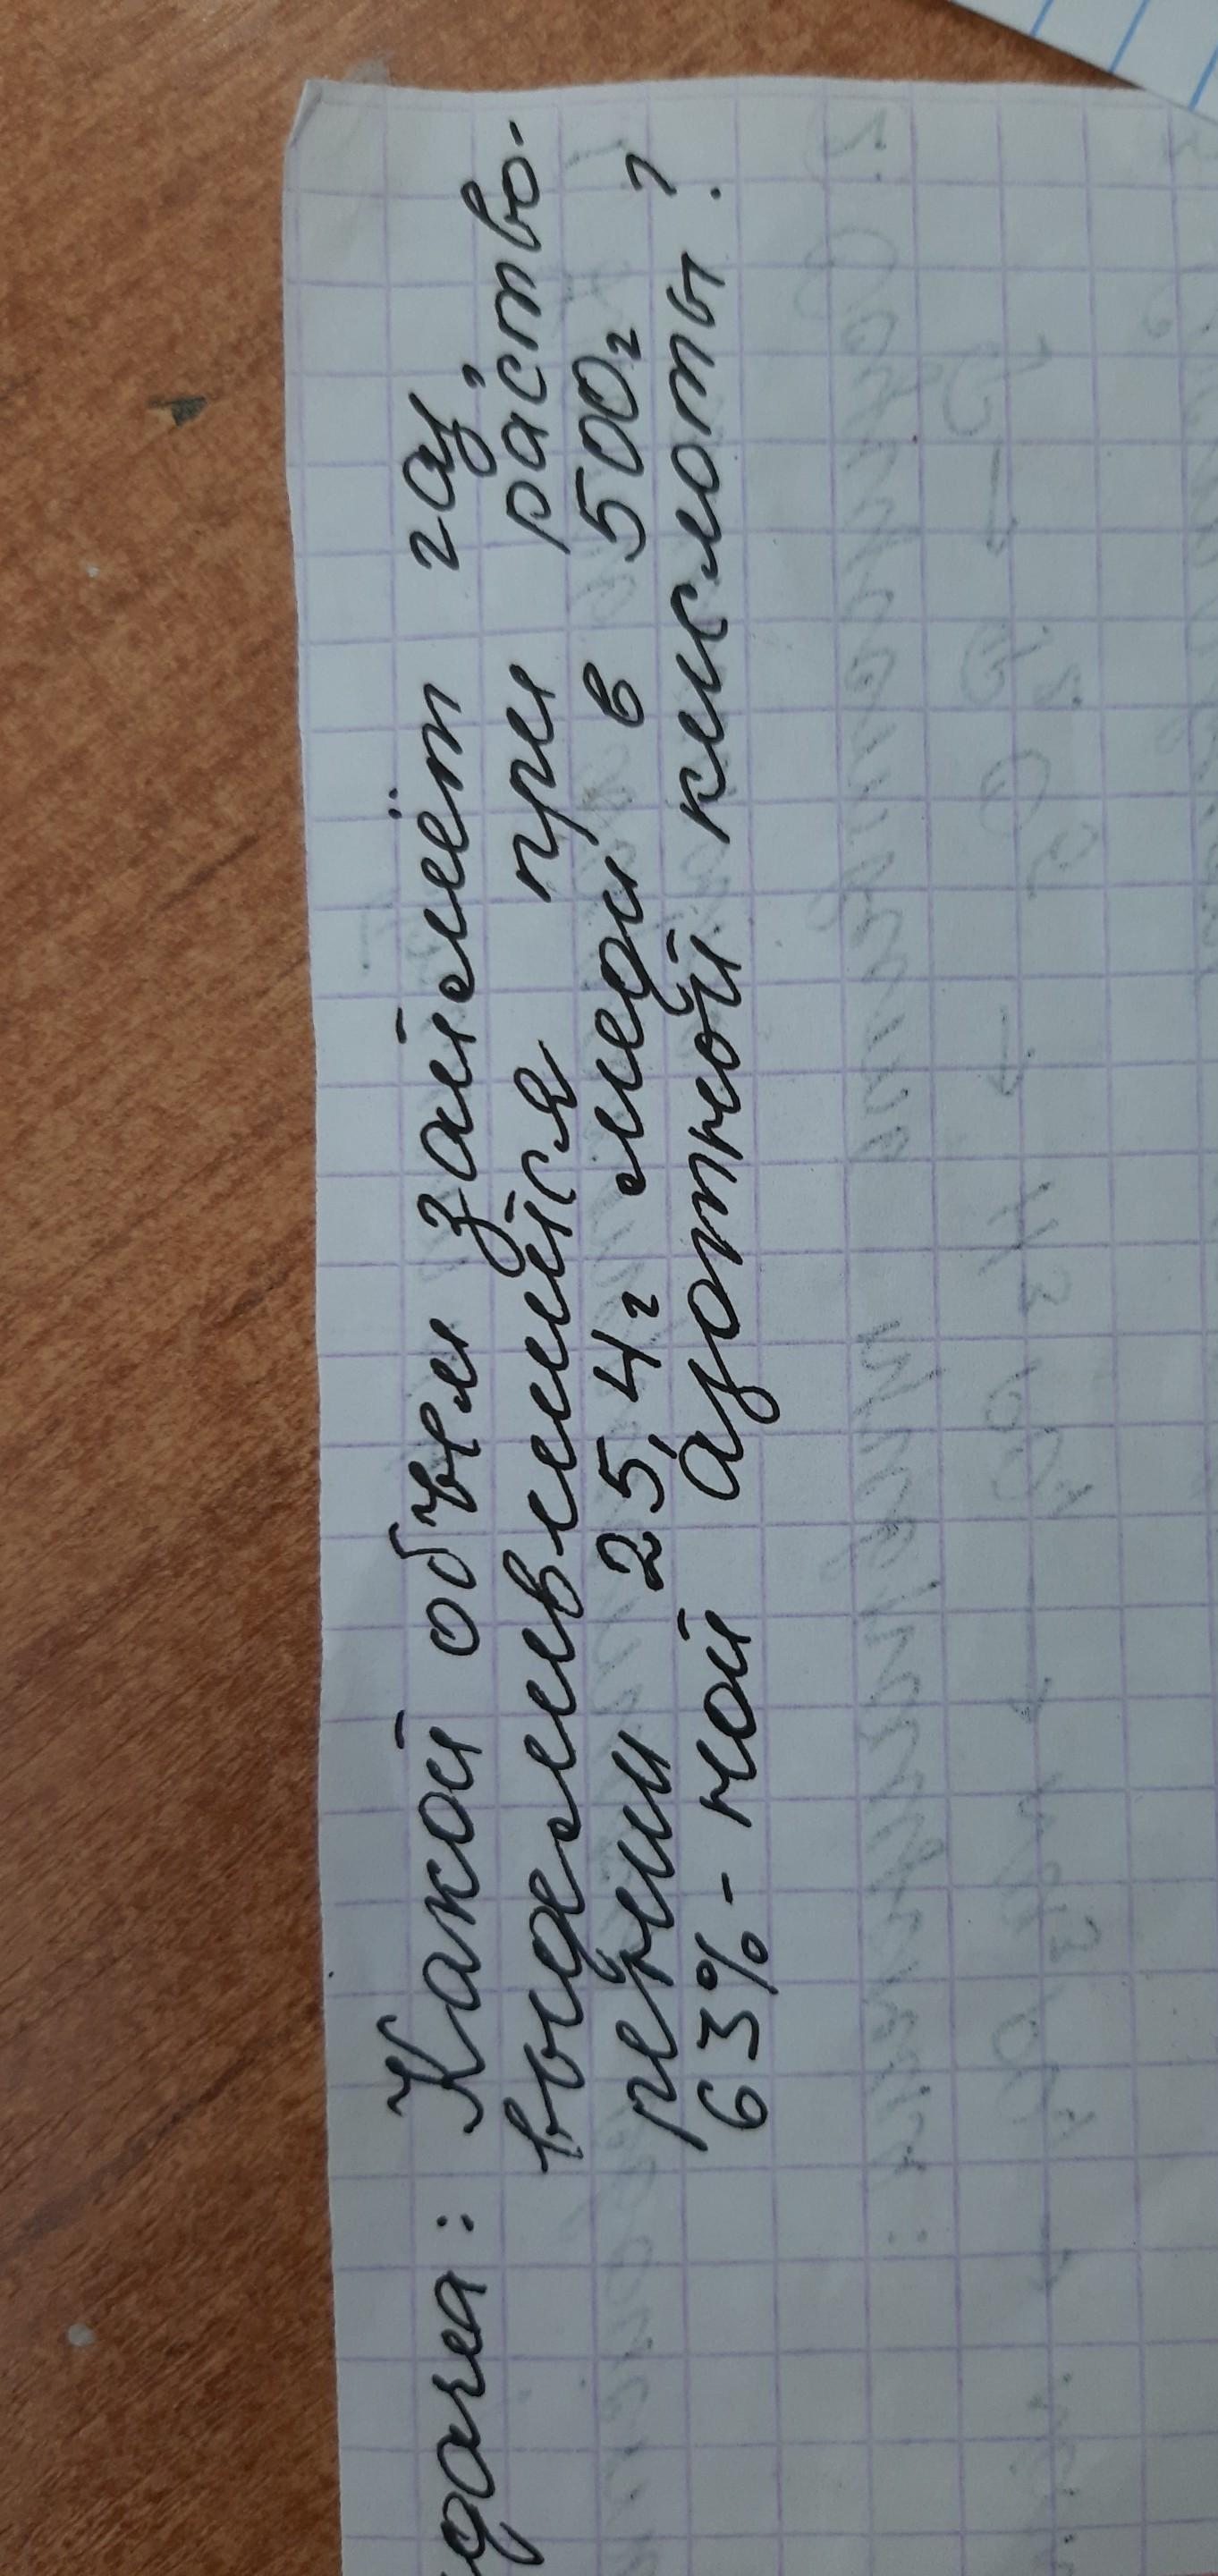 дача: Какой объем займёт газ,
выделившийся при раство-
рении 25,4г меди в 500г
63%-ной азотной кислоты?